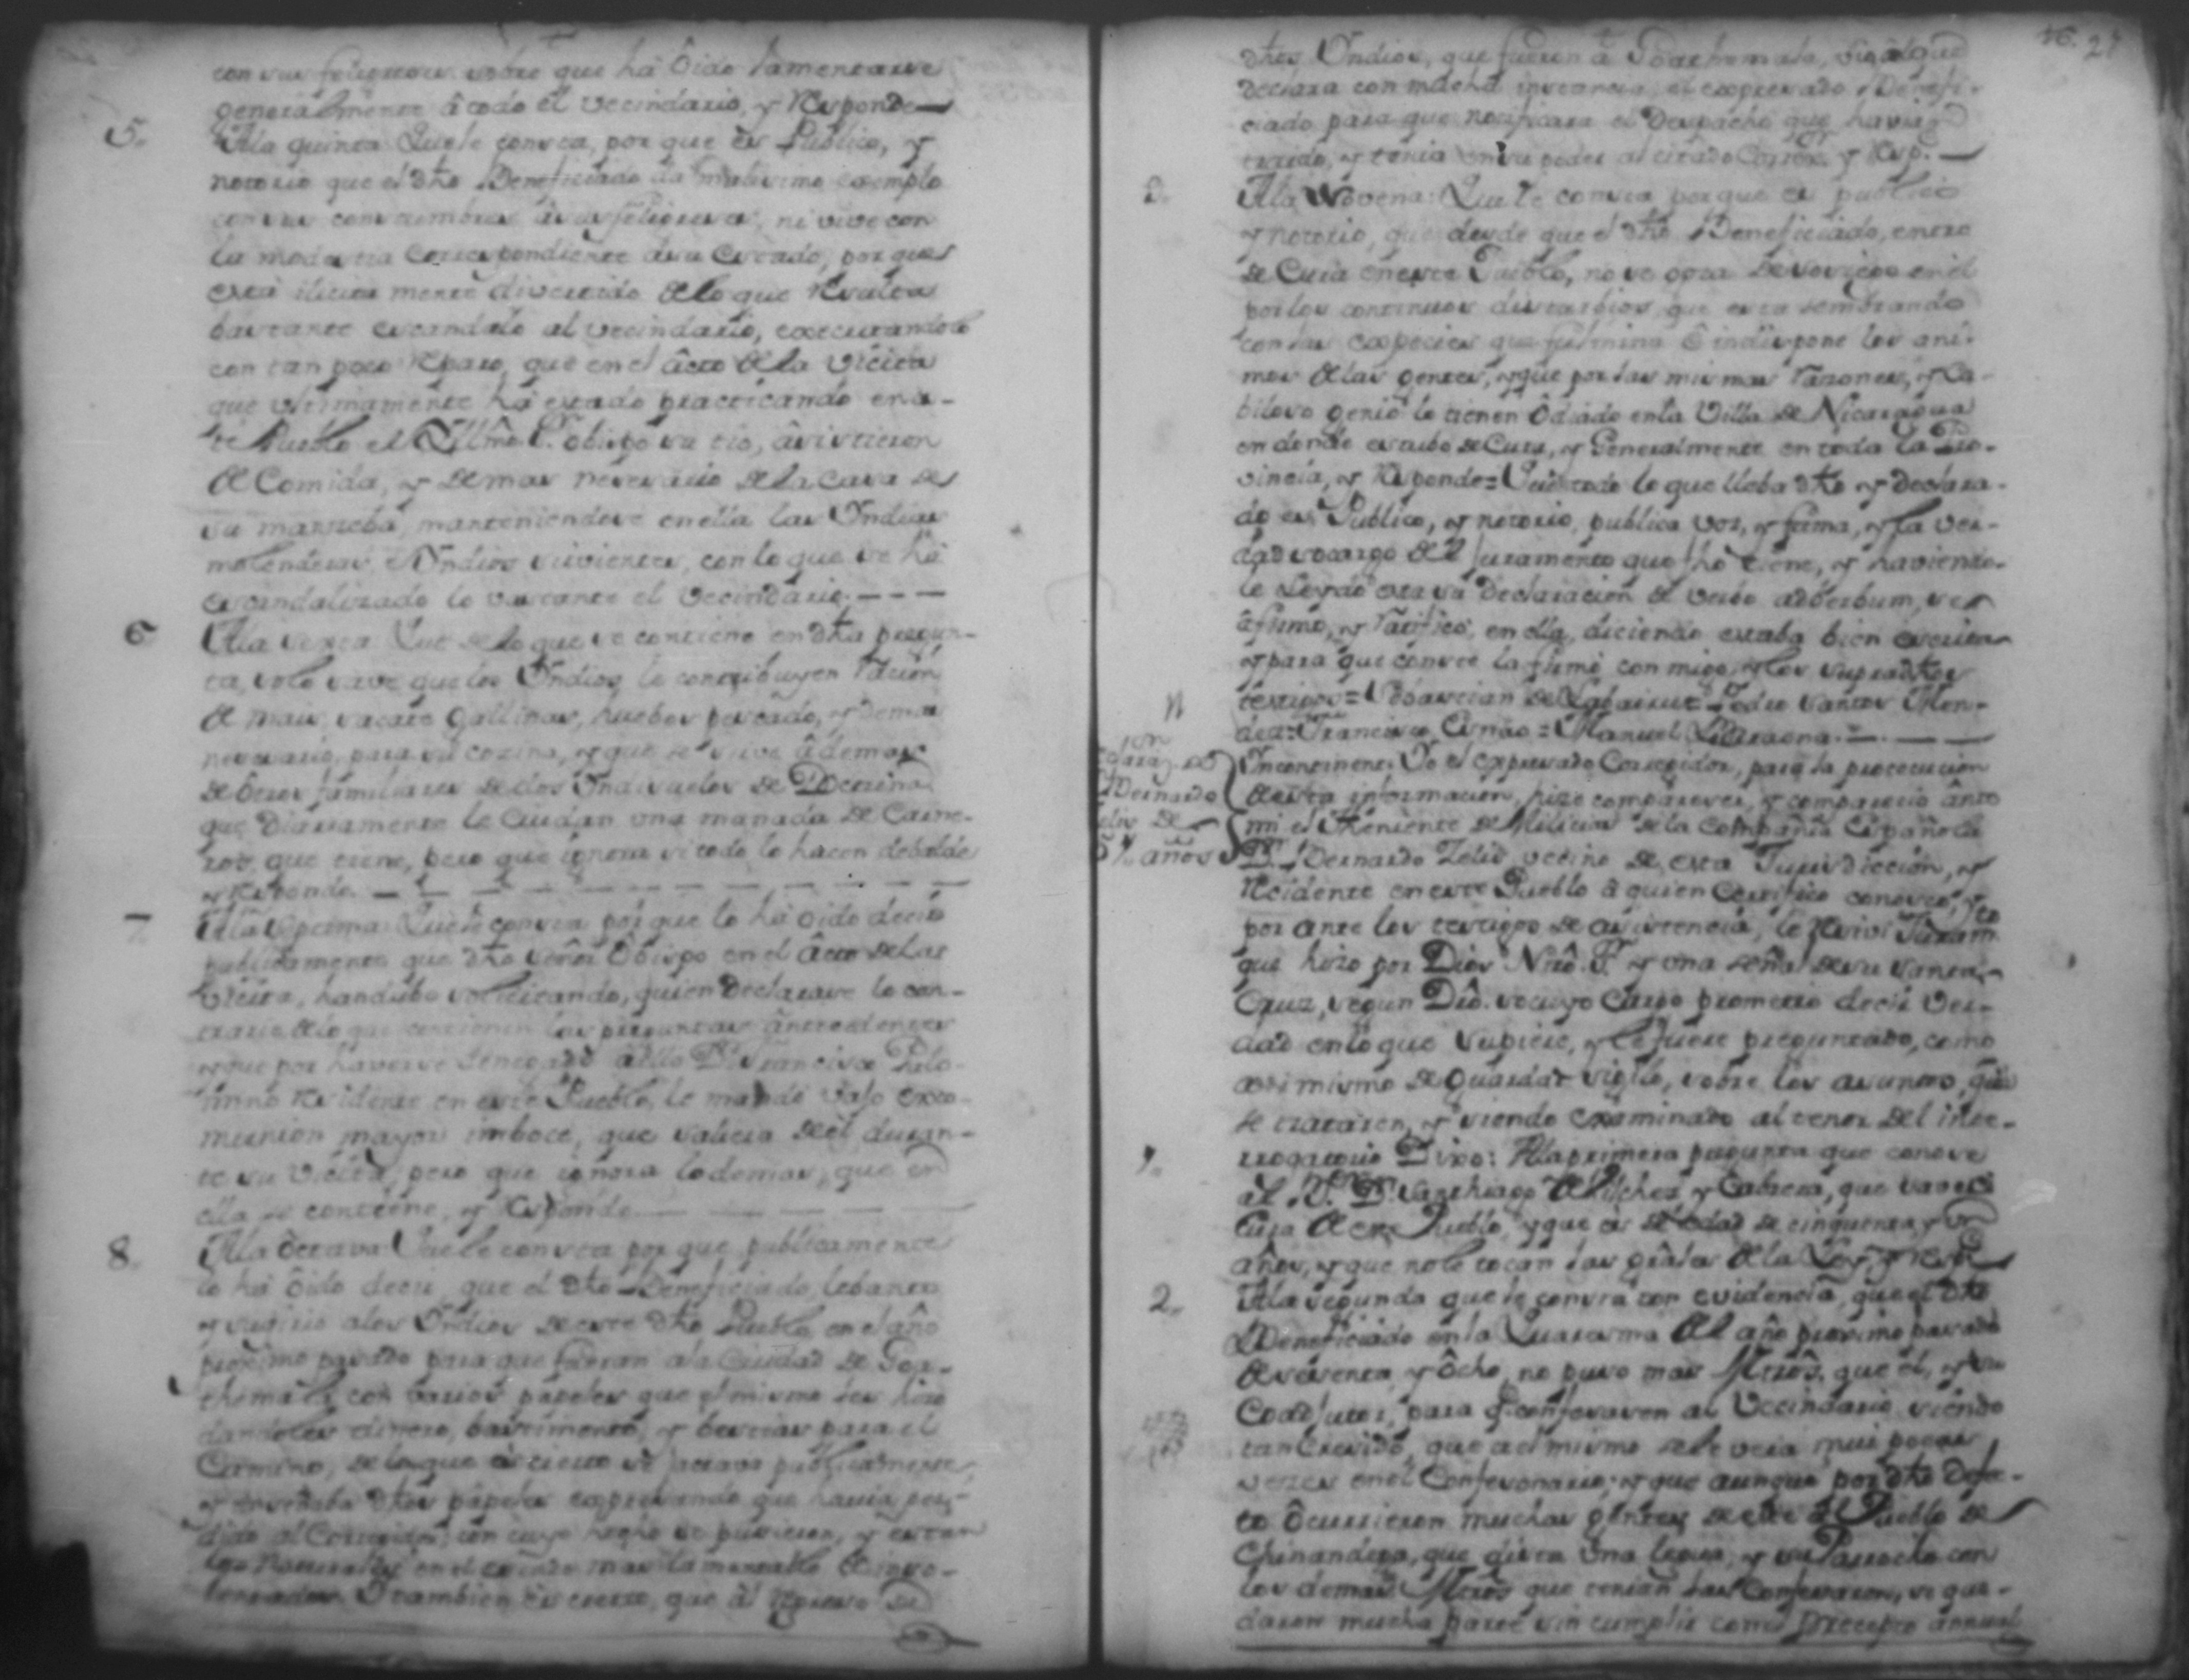 con sus feligreses sobre que há ôido lamentarse
generalmente â todo el vecindario, y Responde—
5. Ala quinta Que le consta, por que es Publico, y
notorio que el dho Beneficiado da malisimo exemplo
con sus costumbres â sus feligreses, ni vive con
la modestia correspondiente âsu Estado, por que
está ilicita mente divertido de lo que Resulta
bastante escandalo al vecindario, executandolo
con tan poco Reparo, que en el âcto de la Vicita
que ultimamente há estado practicando en es-
te Pueblo el Yllmo. Sr. obispo su tio, âsistieron
de Comida, y demas nesesario de la Casa de
su manseba, manteniendose en ella las Yndias
molenderas, e Yndios sirvientes, con lo que se há
escandalizado lo bastante el Vecindario.———
6 Ala sexta Que de lo que se contiene en dha pregun-
ta, solo save que los Yndios le contribuyen Racion
de mais, sacate Gallinas, huebos pescado, y demas
nesesario, para su cozina, y que se sirve âdemas
de ôtros familiares de dos Yndisuelos de Doctrina
que Diariamente le Cuidan una manada de Carne-
ros, que tiene, pero que ignora si todo lo hacen debalde
y Responde.
7 Ala septima Que le consta por que lo há oido decir
publicamente que dho señor Obispo en el âcto de la
Vicita, handubo solicitando, quien Declarase lo con-
trario de lo que contienen las preguntas ântecedentes
y que por haverse denegado â ello Dn. Francisco Palo-
mino Residente en este Pueblo, le mandó vajo exco-
munion mayor que saliera de él duran-
te su Vicita; pero que ignora lo demas, que en
ella se contiene, y Responde
8. Ala octava Que le consta por que publicamente
lo há ôido decir, que el dho Beneficiado lebanto
y sugirio alos Yndios de este dho Pueblo en el año
proximo pasado para que fueran ala Ciudad de Goa-
themala, con varios papeles que el mismo les hizo
dandoles dinero, bastimento, y bestias para el
Camino, de lo que es cierto se jactava publicamente,
y enseñaba dhos papeles expresando que havia per-
dido al Corregidor, con cuyo hecho se pusieron, y estan
los Naturales en el estado mas lamentable
Y tambien es cierto, que al Regreso de
16. 27
dhos Yndios, que fueron â Goathemala, sigue que
declara con mucha instancia, el expresado Benefi-
ciado para que notificara el Despacho que havian
traido, y tenia en su poder al citado Corror. y Resp.—
9. Ala Novena: Que le consta porque es publico
y notorio, que desde que el dho Beneficiado, entro
de Cura en este Pueblo, no se goza de sosiego en él
por los continuos disturbios que esta sembrando
con las expecies que fulmina ê indispone los ani-
mos de las gentes, y que por las mismas razones, y ca-
biloso genio le tienen ôdiado en la Villa de Nicaragua
en donde estubo de Cura, y Generalmente en toda la Pro-
vincia, y Responde= Que todo lo que lleba dho y declara-
do es Publico, y notorio, publica voz, y fama, y la ver-
dad socargo del Juramento que fho tiene, y haviendo-
le leydo esta su Declaracion de verbo adberbum, se
âfirmó, y Ratificó, en ella, diciendo estaba bien escrita
y para que conste la firmó con migo, y los supradhos
testigos= Pedro Santos Men-
dez= Francisco = Manuel
Yncontinenti Yo el expresado Corregidor, para la prosecucion
Bernardo desta informacion, hize comparever, y comparecio ânte
de mi el Theniente de Milicias de la Compañia Española
años Dn. Bernardo Zelis vecino de esta Jurisdiccion, y
Recidente en este Pueblo â quien Certifico conosco, y
por ante los testigos de asistencia, le Resivi Juramto.
que hizo por Dios Nro. Sr. y una señal de su Santa
Cruz, segun Dro. socuyo cargo prometio decir Ver-
dad en lo que supiere, y le fuere preguntado, como
asi mismo de guardar sigilo, sobre los asuntos, que
se trataren, y siendo examinado al tenor del inte-
1. rrogatorio Dixo: Ala primera pregunta que conose
al Sr. Dn. Santhiago de Vilches y Cabrera, que
Cura de este Pueblo, y que es de edad de cinquenta y un
años, y que nole tocan las grales de la Ley, y Resp.
2. Ala segunda que le consta con evidencia, que el dho
Beneficiado en la Quaresma del año proximo pasado
de sesenta, y ôcho, no puso mas Mtros. que él, y su
Coadjutor, para q. confesasen al Vecindario siendo
tan Cresido, que asi mismo se le veia mui pocas
veces en el Confesonario, y que aunque por dho defe-
to ôcurrieron muchas gentes de este al Pueblo de
Chinandega, que dista una legua, y su Parrocho con
los demas Mtros que tenian las Confesaron, se que-
daron mucha parte sin cumplir con el precepto annual